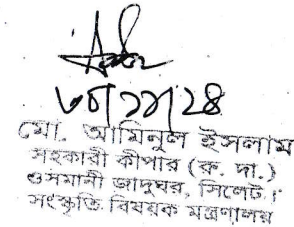 ৩০/১১/২৪
মো. আমিনুল ইসলাম
সহকারী কীপার (রু. দা.)
ওসমানী জাদুঘর, সিলেট।
সংস্কৃতি বিষয়ক মন্ত্রণালয়